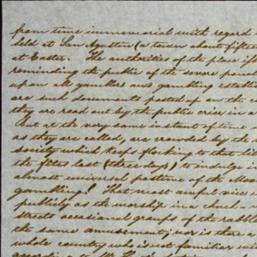 from time immemorial with regard
held at San Agustin (a town about fifteen
at Easter. The authorities of the place
reminding the public of the severe penal
upon all gamblers and gambling establi
are such documents posted up on the
they are read out by the public crier in a
But at the very same instant of time
as they are called, are crowded by the
society which keeps flocking to that
the fêtes last (three days) to indulge i
almost universal pastime of the
gambling! That most awful vice
publicly as the worship in church
streets occasional groups of the rabble
the same amusement; nor is there a
whole country who is not familiar wi